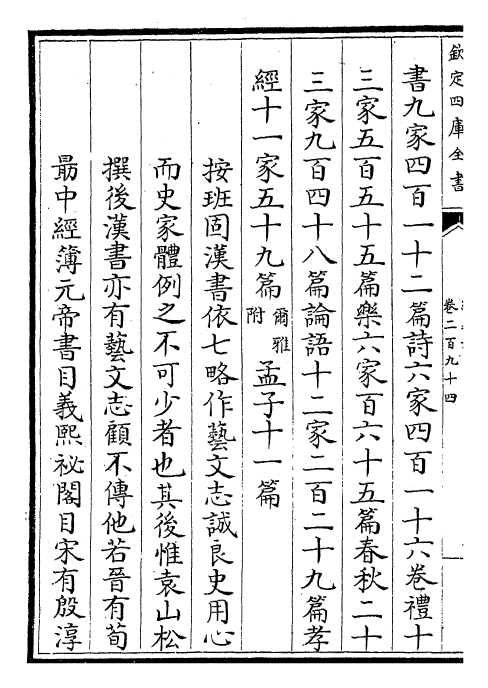 欽定四庫全書
卷二百九十四
書九家四百一十二篇詩六家四百一十六卷禮十
三家五百五十五篇樂六家百六十五篇春秋二十
三家九百四十八篇論語十二家二百二十九篇孝
經十一家五十九篇爾雅附孟子十一篇
按班固漢書依七略作藝文志誠良史用心
而史家體例之不可少者也其後惟袁山松
撰後漢書亦有藝文志顧不傳他若晉有荀
勗中經簿元帝書目義熙祕閣目宋有殷淳